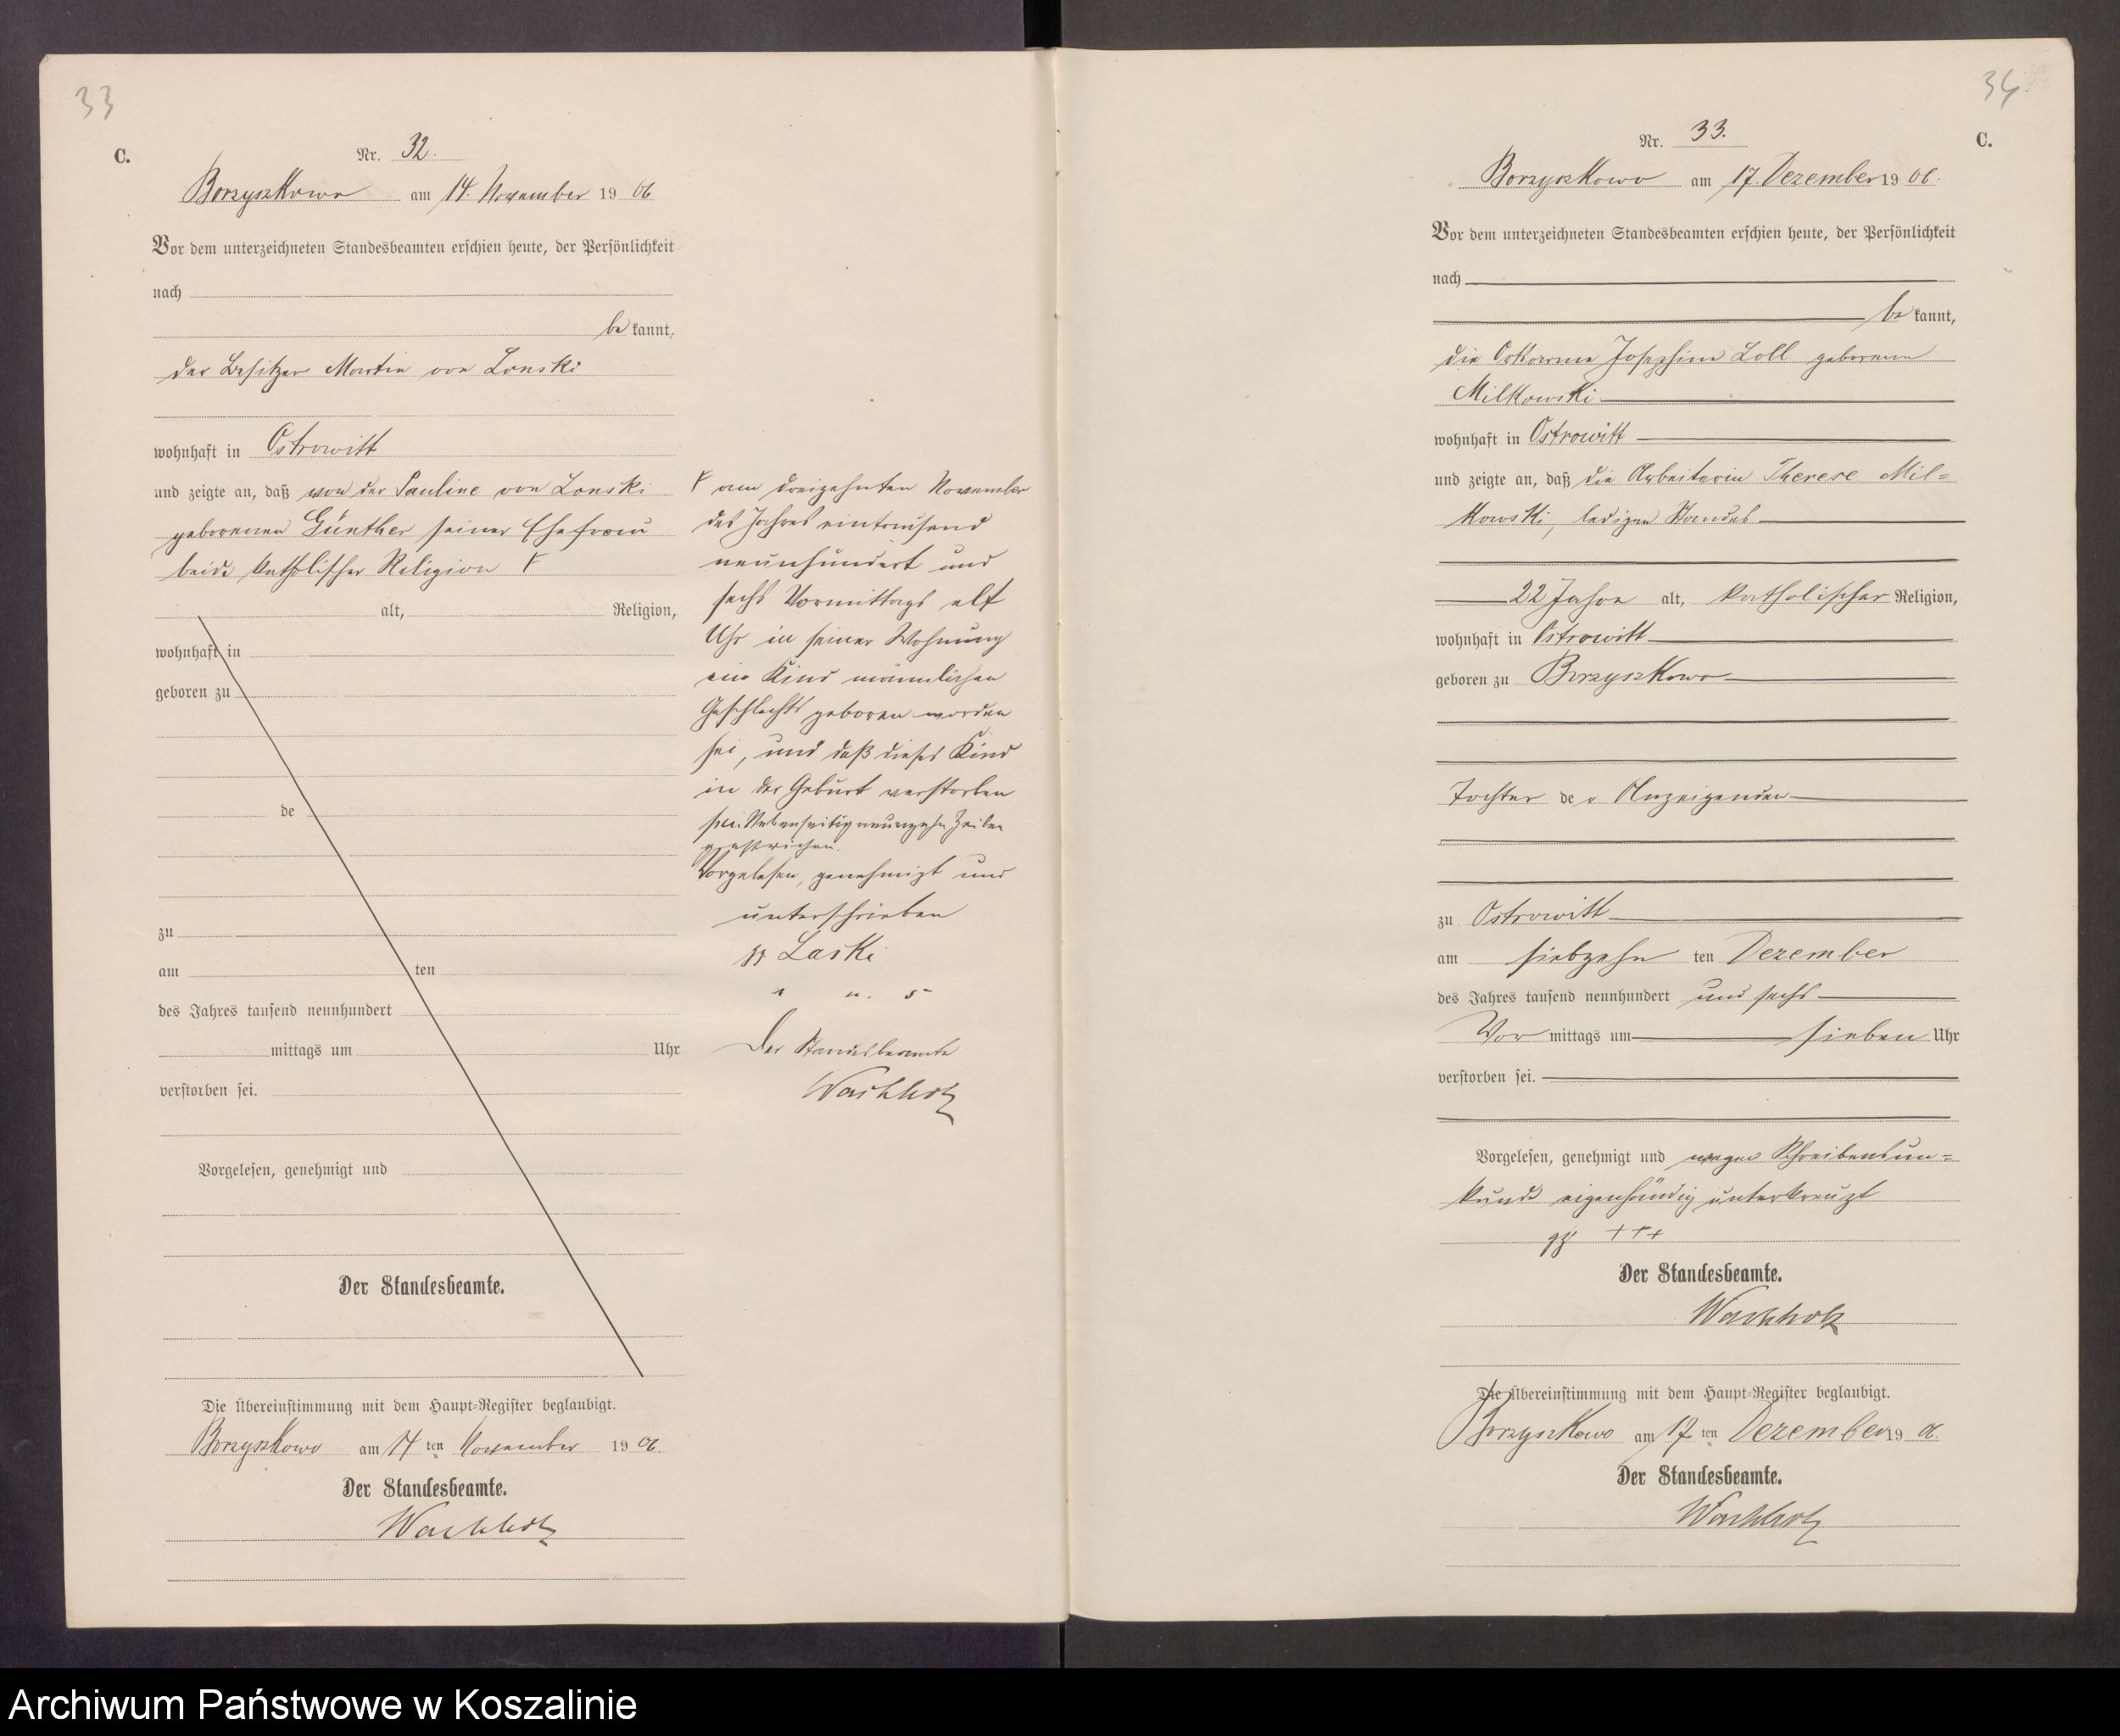 33
C.
Nr. 32.
Borzyszkowo am 14. November 19 06
Vor dem unterzeichneten Standesbeamten erschien heute, der Persönlichkeit
nach
be kannt,
der Besitzer Martin von Lonski
wohnhaft in Ostrowitt
und zeigte an, daß von der Pauline von Lonski
geborenen Günther seiner Ehefrau
beide katholischer Religion
alt, Religion,
wohnhaft in
geboren zu
de
zu
am ten
des Jahres tausend neunhundert
mittags um Uhr
verstorben sei.
Vorgelesen, genehmigt und
Der Standesbeamte.
Die Übereinstimmung mit dem Haupt-Register beglaubigt.
Borzyszkowo am 14 ten November 19 06.
Der Standesbeamte.
Wachholz
am dreizehnten November
des Jahres eintausend
neunhundert und
sechs Vormittags elf
Uhr in seiner Wohnung
ein Kind männlichen
Geschlechts geboren worden
sei, und daß dieses Kind
in der Geburt verstorben
sei. Nebenseitig neunzehn Zeilen
gestrichen.
Vorgelesen, genehmigt und
unterschrieben
Der Standesbeamte
Wachholz
34
C.
Nr. 33.
Borzyszkowo am 17. Dezember 19 06.
Vor dem unterzeichneten Standesbeamten erschien heute, der Persönlichkeit
nach
be kannt,
die Josephine Loll geborene
Milkowski
wohnhaft in Ostrowitt
und zeigte an, daß die Arbeiterin Therese Mil=
kowski, ledigen Standes
22 Jahre alt, katholischer Religion,
wohnhaft in Ostrowitt
geboren zu Borzyszkowo
Tochter de r Anzeigenden
zu Ostrowitt
am siebzehn ten Dezember
des Jahres tausend neunhundert und sechs
Vor mittags um sieben Uhr
verstorben sei.
Vorgelesen, genehmigt und wegen Schreibensun=
kunde eigenhändig unterkreuzt
gz +++
Der Standesbeamte.
Wachholz
Die Übereinstimmung mit dem Haupt-Register beglaubigt.
Borzyszkowo am 17 ten Dezember 19 06.
Der Standesbeamte.
Wachholz
Archiwum Państwowe w Koszalinie